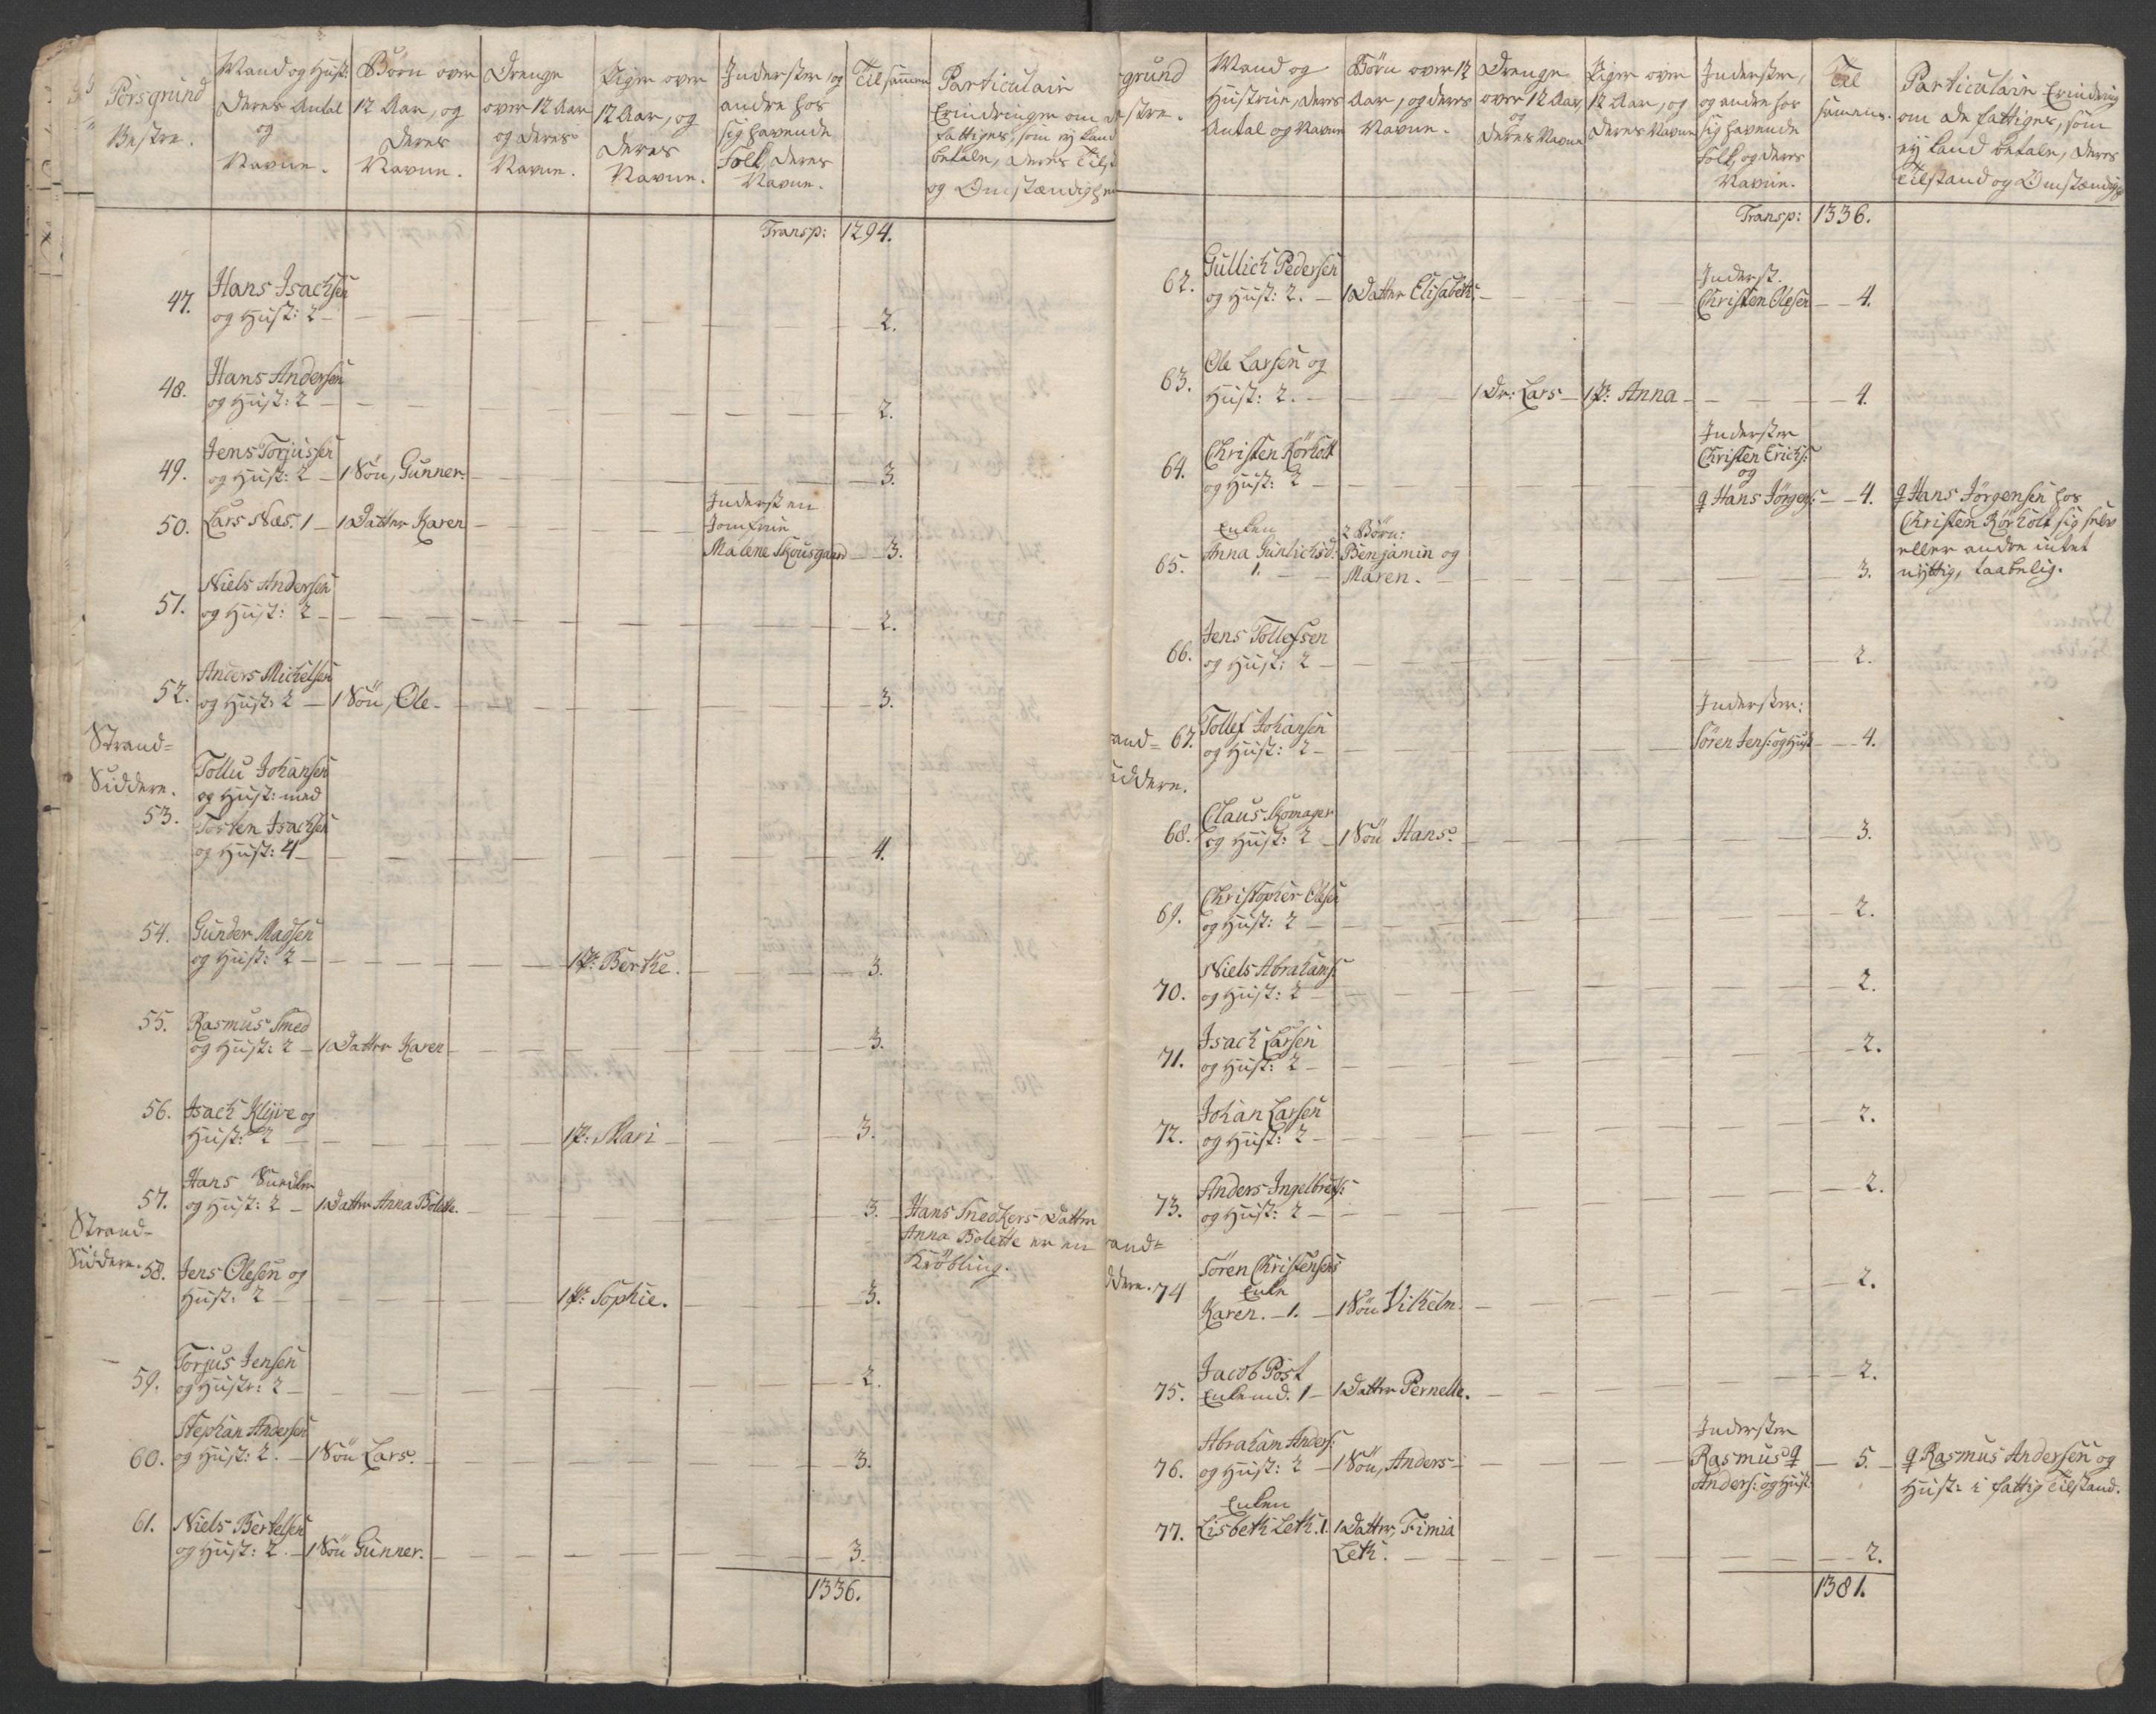 Porsgrund
Vestre.
Mand og Hust:
Deres Antal
og
Navne.
Börn over
12 Aar, og
Deres
Navne.
Drenge
over 12 Aar
og deres
Navne.
Piger over
12 Aar, og
Deres
Navne.
Inderster, og
andre hos
sig havende
Folk, Deres
Navne.
Tilsamen
Particulair
Erindringer om de
fattiges, som ej kand
betale, deres Tilst
og Omstændighe
Transp: 1294.
47. Hans Isachsen
og Hust: 2 — 2.
48. Hans Andersen
og Hust: 2 — 2.
49. Jens Torjussen
og Hust: 2 — 1 Sön, Gunner. — 3.
50. Lars Næs. 1 — 1 Datter Karen — Inderst en
Jomfrue
Malene Skousgaard — 3.
51. Niels Andersen
og Hust: 2 — 2.
52. Anders Michelsen
og Hust: 2 — 1 Sön, Ole — 3.
Strand=
Siddere.
53. Tollu Johansen
og Hust: med
Tosten Isachsen
og Hust: 4 — 4.
54. Gunder Madsen
og Hust: 2 — 1 P: Berthe. — 3.
55. Rasmus Smed
og Hust: 2 — 1 Datter Karen — 3.
56. Isach Klyve og
Hust: 2 — 1 P: Mari — 3.
57. Hans
og Hust: 2 — 1 Datter Anna Bolette. — 3. — Hans Snedkers Datter
Anna Bolette er en
Kröbling.
Strand-
Siddere.
58. Jens Olesen og
Hust: 2 — 1 P: Sophie. — 3.
59. Torjus Jensen
og Hustr: 2 — 2.
60. Stephan Andersen
og Hust: 2. — 1 Sön Lars. — 3.
61. Niels Bertelsen
og Hust: 2. — 1 Sön Gunner. — 3.
1336.
grund
stre.
Mand og
Hustrue, deres
Antal og Navne
Börn over 12
Aar, og deres
Navne.
Drenge
over 12 Aar,
og
Deres Navne
Piger over
12 Aar, og
Deres Navne
Inderster,
og anden hos
sig havende
Folk, og deres
Navne.
Til
samens.
Particulair Erindring
om de fattiges, som
ej kand betale, deres
Tilstand og Omstændigh
Transp: 1336.
62. Gullich Pedersen
og Hust: 2. — 1 Datter Elisabeth. — Inderst.
Christen Olesen — 4.
63. Ole Larsen og
Hust: 2. — 1 Dr: Lars — 1 P: Anna — 4.
64. Christen Körholt
og Hust: 2 — Inderster
Christen Erichs:
og
Hans Jörgens: — 4. Hans Jörgensen hos
Christen Körholt sig selv
eller andre intet
nyttig, taabelig.
65. Enken
Anna Gunlichsd:
1. — 2 Börn:
Benjamin og
Maren. — 3.
66. Jens Tollefsen
og Hust: 2 — 2.
and=
iddere.
67. Tollef Johansen
og Hust: 2 — Inderster:
Sören Jens: og Hust — 4.
68. Claus Skomager
og Hust: 2 — 1 Sön Hans. — 3.
69. Christopher Olsen
og Hust: 2 — 2.
70. Niels Abrahams:
og Hust: 2 — 2.
71. Isach Larsen
og Hust: 2 — 2.
72. Johan Larsen
og Hust: 2 — 2.
73. Anders Ingelbrets:
og Hust: 2 — 2.
and=
ddere.
74 Sören Christensens
Enke
Karen. — 1. — 1 Sön Vilhelm. — 2.
75. Jacob Post
Enkemd. 1 — 1 Datter Pernelle. — 2.
76. Abraham Anders:
og Hust: 2 — 1 Sön, Anders — Inderster
Rasmus
Anders: og Hust: — 5. — Rasmus Andersen og
Hust: i fattig Tilstand.
77. Enken
Lisbeth Leth. 1. 1 Datter, Fimia
Leth. — 2.
1381.